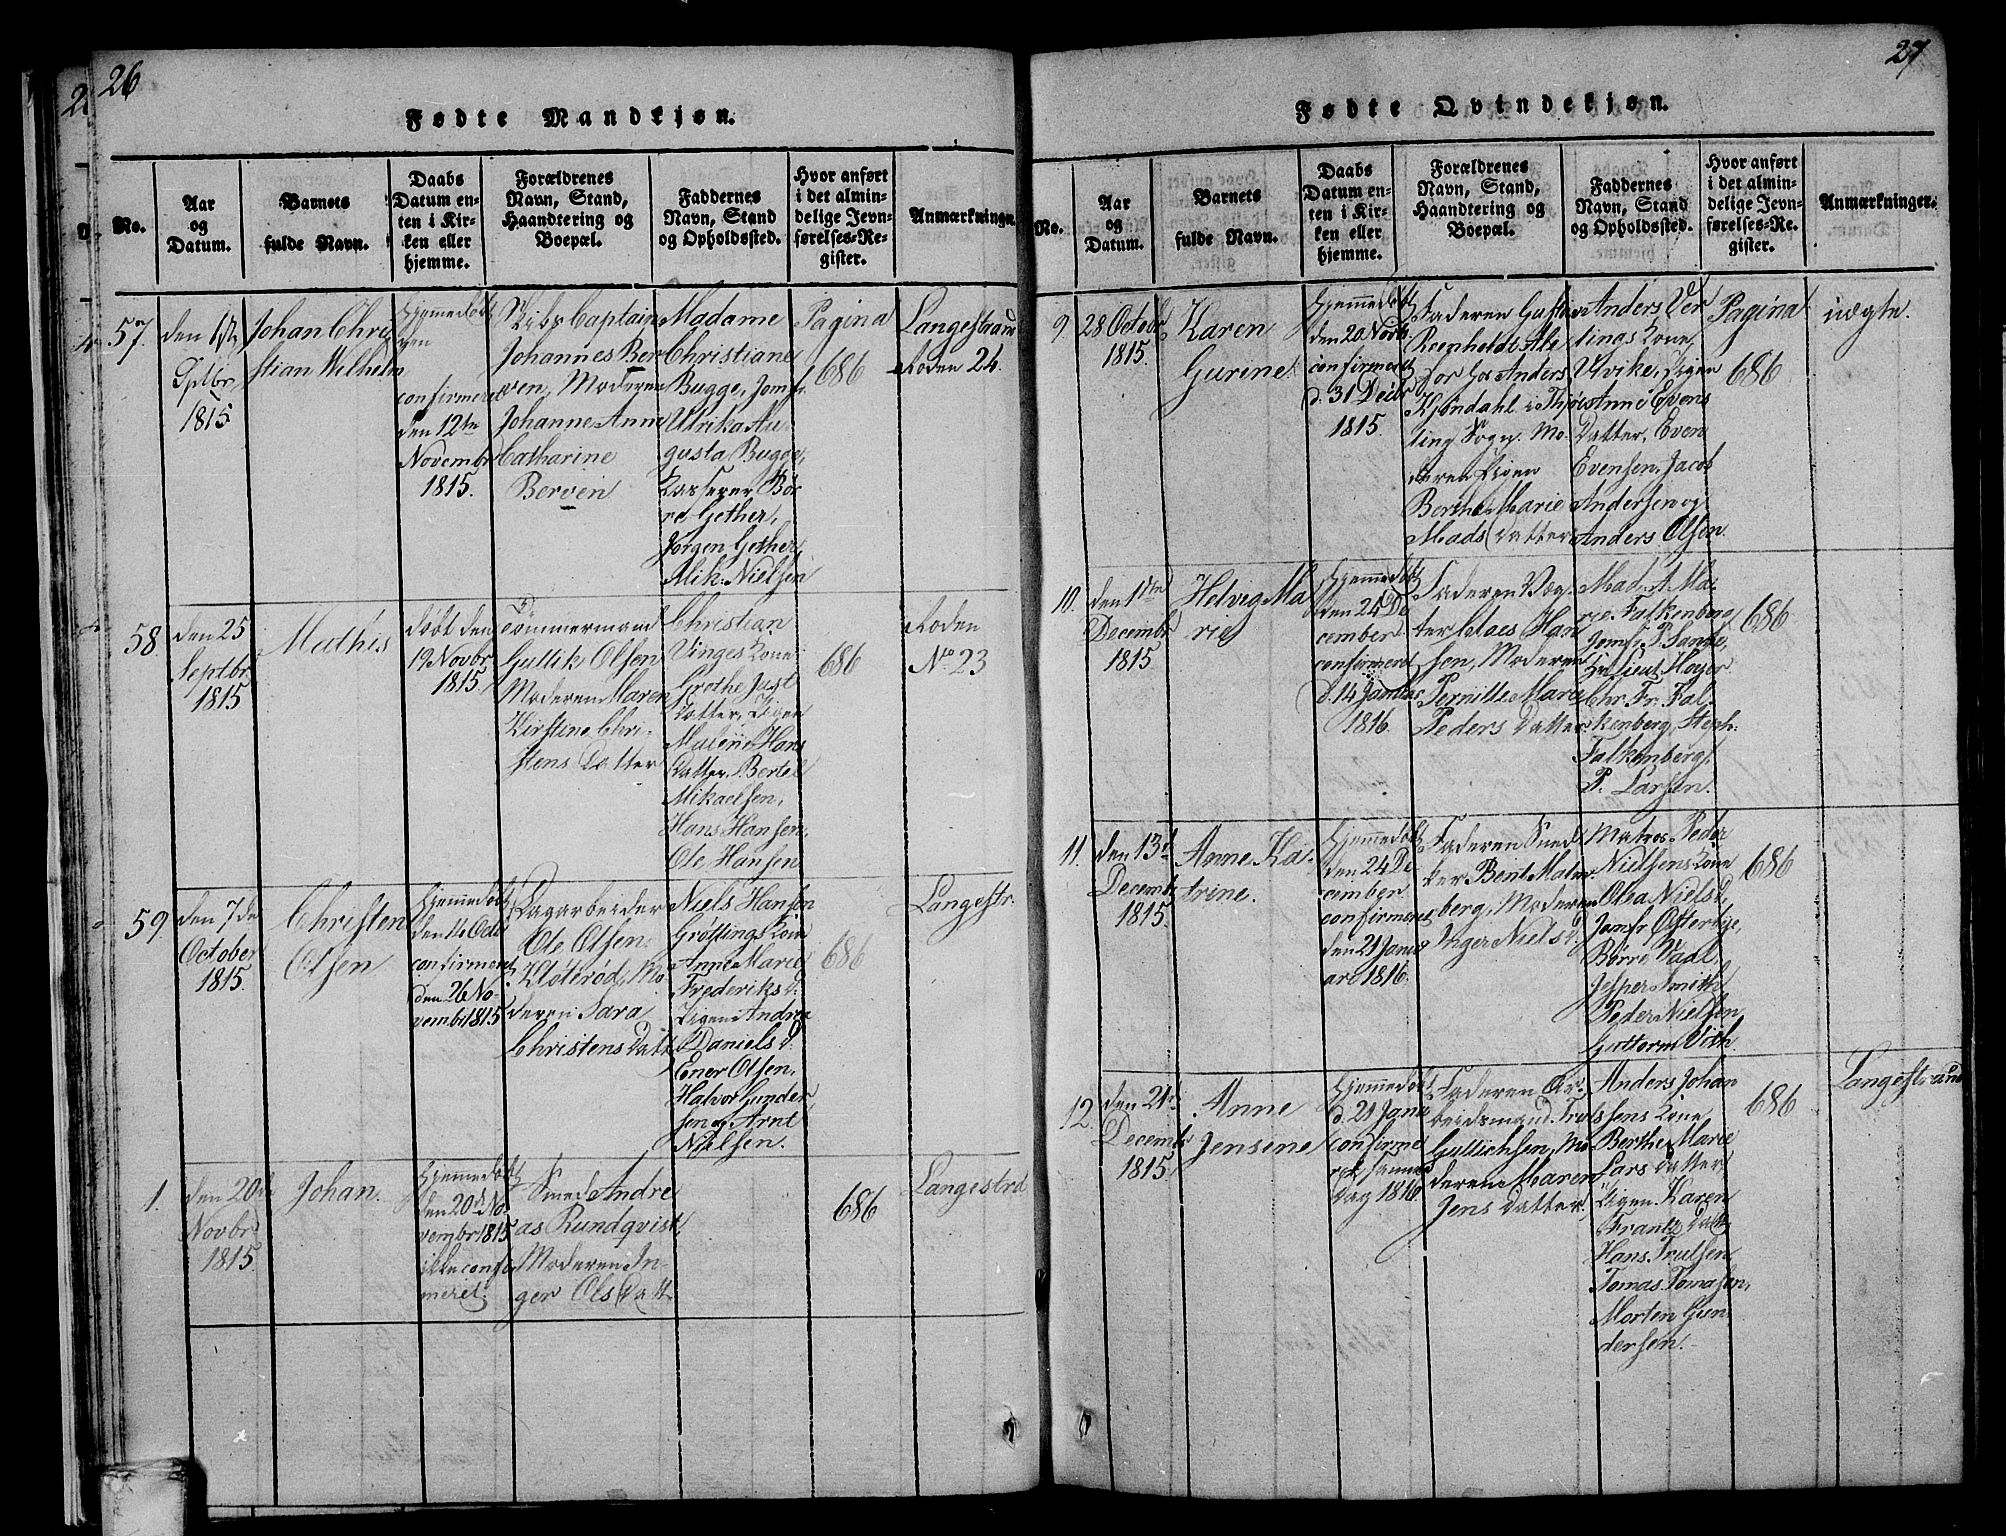 26
Fødte Mandkjøn.
No.
Aar
og
Datum.
Barnets
fulde Navn.
Daabs
Datum en-
ten i Kir-
ken eller
hjemme.
Forældrenes
Navn, Stand,
Haandtering og
Boepæl.
Faddernes
Navn, Stand
og Opholdssted.
Hvor anført
i det almin-
delige Jevn-
førelses-Re-
gister.
Anmærkninger.
57.
Septbr
1815
Johan Chri
stian Wilhelm
Hjemmedøbt
den
confirmeret
den 12te
Novembr
1815.
Skibs Captain
Johannes Ber
ven, Moderen
Johanne Anne
Catharine
Berven
Madame
Christiane
Bugge, Jomfr.
Ulrika Au
gusta Bugge,
Kasserer Bör
re Gether,
Jörgen Gether,
Mik. Nielsen
Pagina
686
Langestrand
Roden 24.
58.
den 25
Septbr
1815
Mathis
döbt den
19 Novbr
1815.
Tömmermand
Gullik Olsen
Moderen Maren
Kirstine Chri-
stens Datter
Christian
Vinges Kone
Grothe Just
Datter, Pigen
Malene Hans
Datter, Bertel
Mikaelsen,
Hans Hansen,
Ole Hansen
686
Roden
No 23
59.
den 7de
October
1815.
Christen
Olsen
Hjemmedøbt
confirmeret
den 26 No-
vembr 1815
Dagarbeider
Ole Olsen
Klöteröd, Mo
deren Sara
Christens Datt
Niels Hansen
Gröttings Kone
Anne Marie
Frederiks d.
Pigen Andrea
Daniels d.
Ener Olsen,
Halvor Gunder
sen og Arnt
Nielsen.
686
Langestr.
1.
den 20d
Novbr
1815
Johan.
Hjemmedøbt
den 20d No
vembr 1815
ikke confir
meret.
Smed Andre
as Rundqvist,
Moderen In-
ger Ols Datt.
686
Langestrd
27
Fødte Qvindekjøn.
No.
Aar
og
Datum.
Barnets
fulde Navn.
Daabs
Datum en-
ten i Kir-
ken eller
hjemme.
Forældrenes
Navn, Stand,
Haandtering og
Boepæl.
Faddernes
Navn, Stand
og Opholdssted.
Hvor anført
i det almin-
delige Jevn-
førelses-Re-
gister.
Anmærkninger.
9.
28 Octobr
1815.
Karen
Gurine
Hjemmedøbt
den 20 Novb.
confirmeret
d. 31 Decbr
1815.
Faderen Gustav
Anders
Kjöndahl i Thjöl
ling Sogn. Mo-
deren Pigen
Berthe Marie
Mads Datter
Anders Ver
lings Kone,
Ulvike, Pigen
Anne Evens
Datter, Even
Evensen, Jacob
Andersen og
Anders Olsen.
Pagina
686
uægte.
10.
den 17de
Decembr
1815.
Helvig Ma
rie
Hjemmedøbt
den 24 De
cember
confirmeret
d. 14 Januar
1816.
Faderen Vog-
ter Claes Han
sen, Moderen
Pernille Marie
Peders Datter
Mad. A. Ma
rie Falkenberg,
Jomfr. P.
Hr. Lieut. Hoyer
Chr. Fr. Fal-
kenberg, Steph.
Falkenberg,
P. Larsen.
686
11.
den 13d
Decembr
1815.
Anne Ka-
trine.
Hjemmedøbt
den 24 De
cember
confirmeret
den 21 Janu
ar 1816.
Faderen Sned
ker Bent Malm
berg, Moderen
Inger Niels d.
Matros Peder
Nielsens Kone
Olea Niels d.
Jomfr Österbye,
Börre Wadl,
Jesper Smith
Peder Nielsen,
Guttorm Vith
686
12.
den 21d
Decembr
1815.
Anne
Jensine
Hjemmedøbt
d. 21 Janu
confirme
ret samme
Dag 1816
Faderen Ar-
beidsmand Truls
Gullichsen, Mo
deren Maren
Jens Datter
Anders Johan
sens Kone,
Berthe Marie
Lars Datter
Pigen Karen
Frantz Datt.
Hans Trulsen
Tomas Tomasen,
Morten Gun
dersen.
686
Langestrand